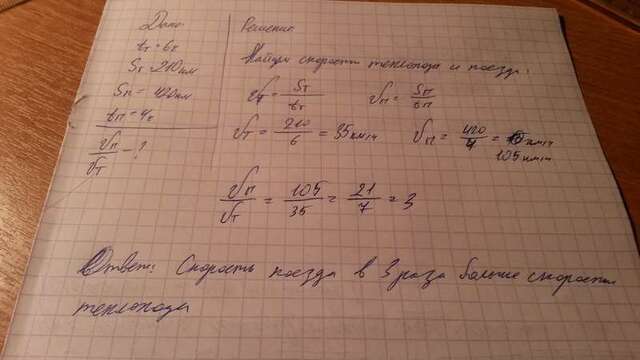 Дано:
tт = 6ч
Sт = 210 км
Sп = 420 км
tп = 4ч
Vп/Vт - ?
Решение
Найдём скорости теплохода и поезда:
Vт = Sт/tт Vп = Sп/tп
Vт = 210/6 = 35 км/ч Vп = 420/4 = км/ч
105 км/ч
Vп/Vт = 105/35 = 21/7 = 3
Ответ: Скорость поезда в 3 раза больше скорости
теплохода